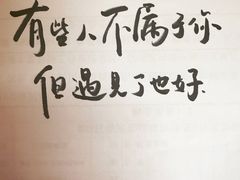 有些人不属于你
但遇见了也好.